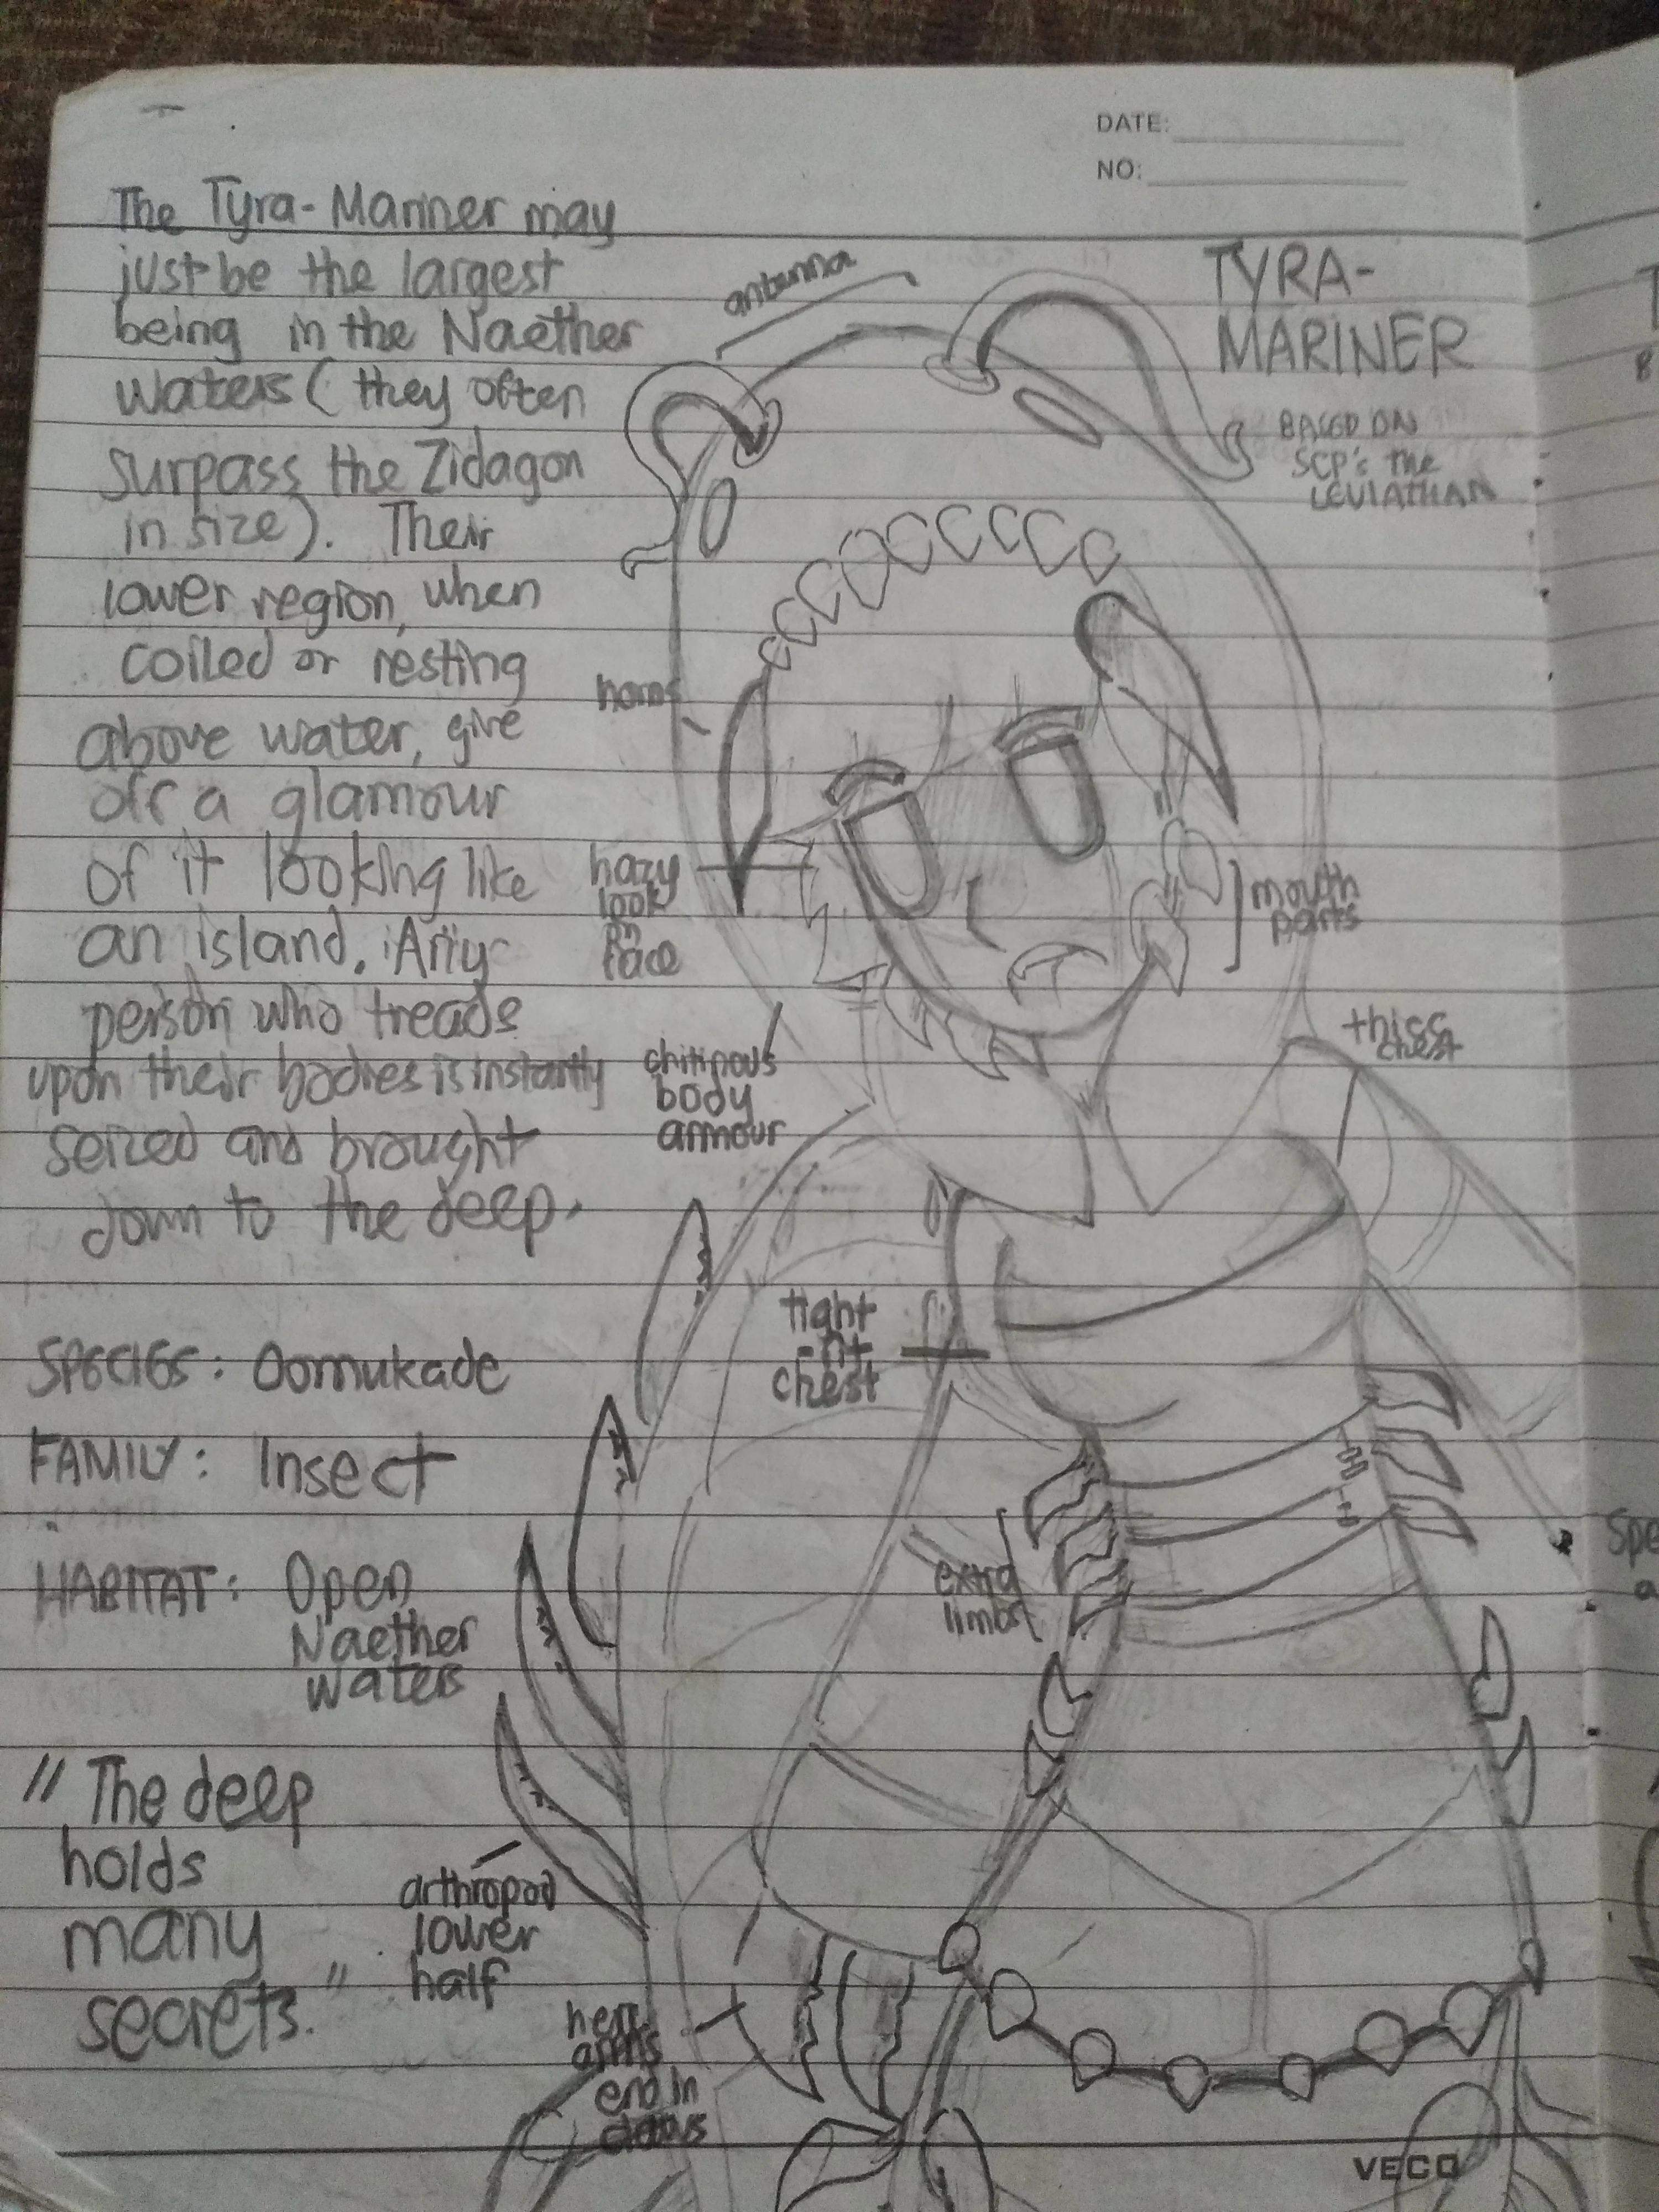 DATE:
NO:
The Tyra-Mariner may
just be the largest
being in the Naether
Waters (they often
surpass the Zidagon
in size). Their
lower region, when
coiled or resting
above water, give
off a glamour
of it looking like
an island. Any
person who treads
upon their bodies is instantly
seized and brought
down to the deep.
SPECIES: Oomukade
FAMILY: Insect
HABITAT: Open
Naether
waters
"The deep
holds
many
secrets."
TYRA-
MARINER
BASED ON
SCP's the
LEVIATHAN
antenna
horns
hazy
look
on
face
mouth
parts
chitinous
body
armour
thicc
chest
tight
chest
extra
limbs
arthropod
lower
half
arms
end in
claws
VECO
Spe
a